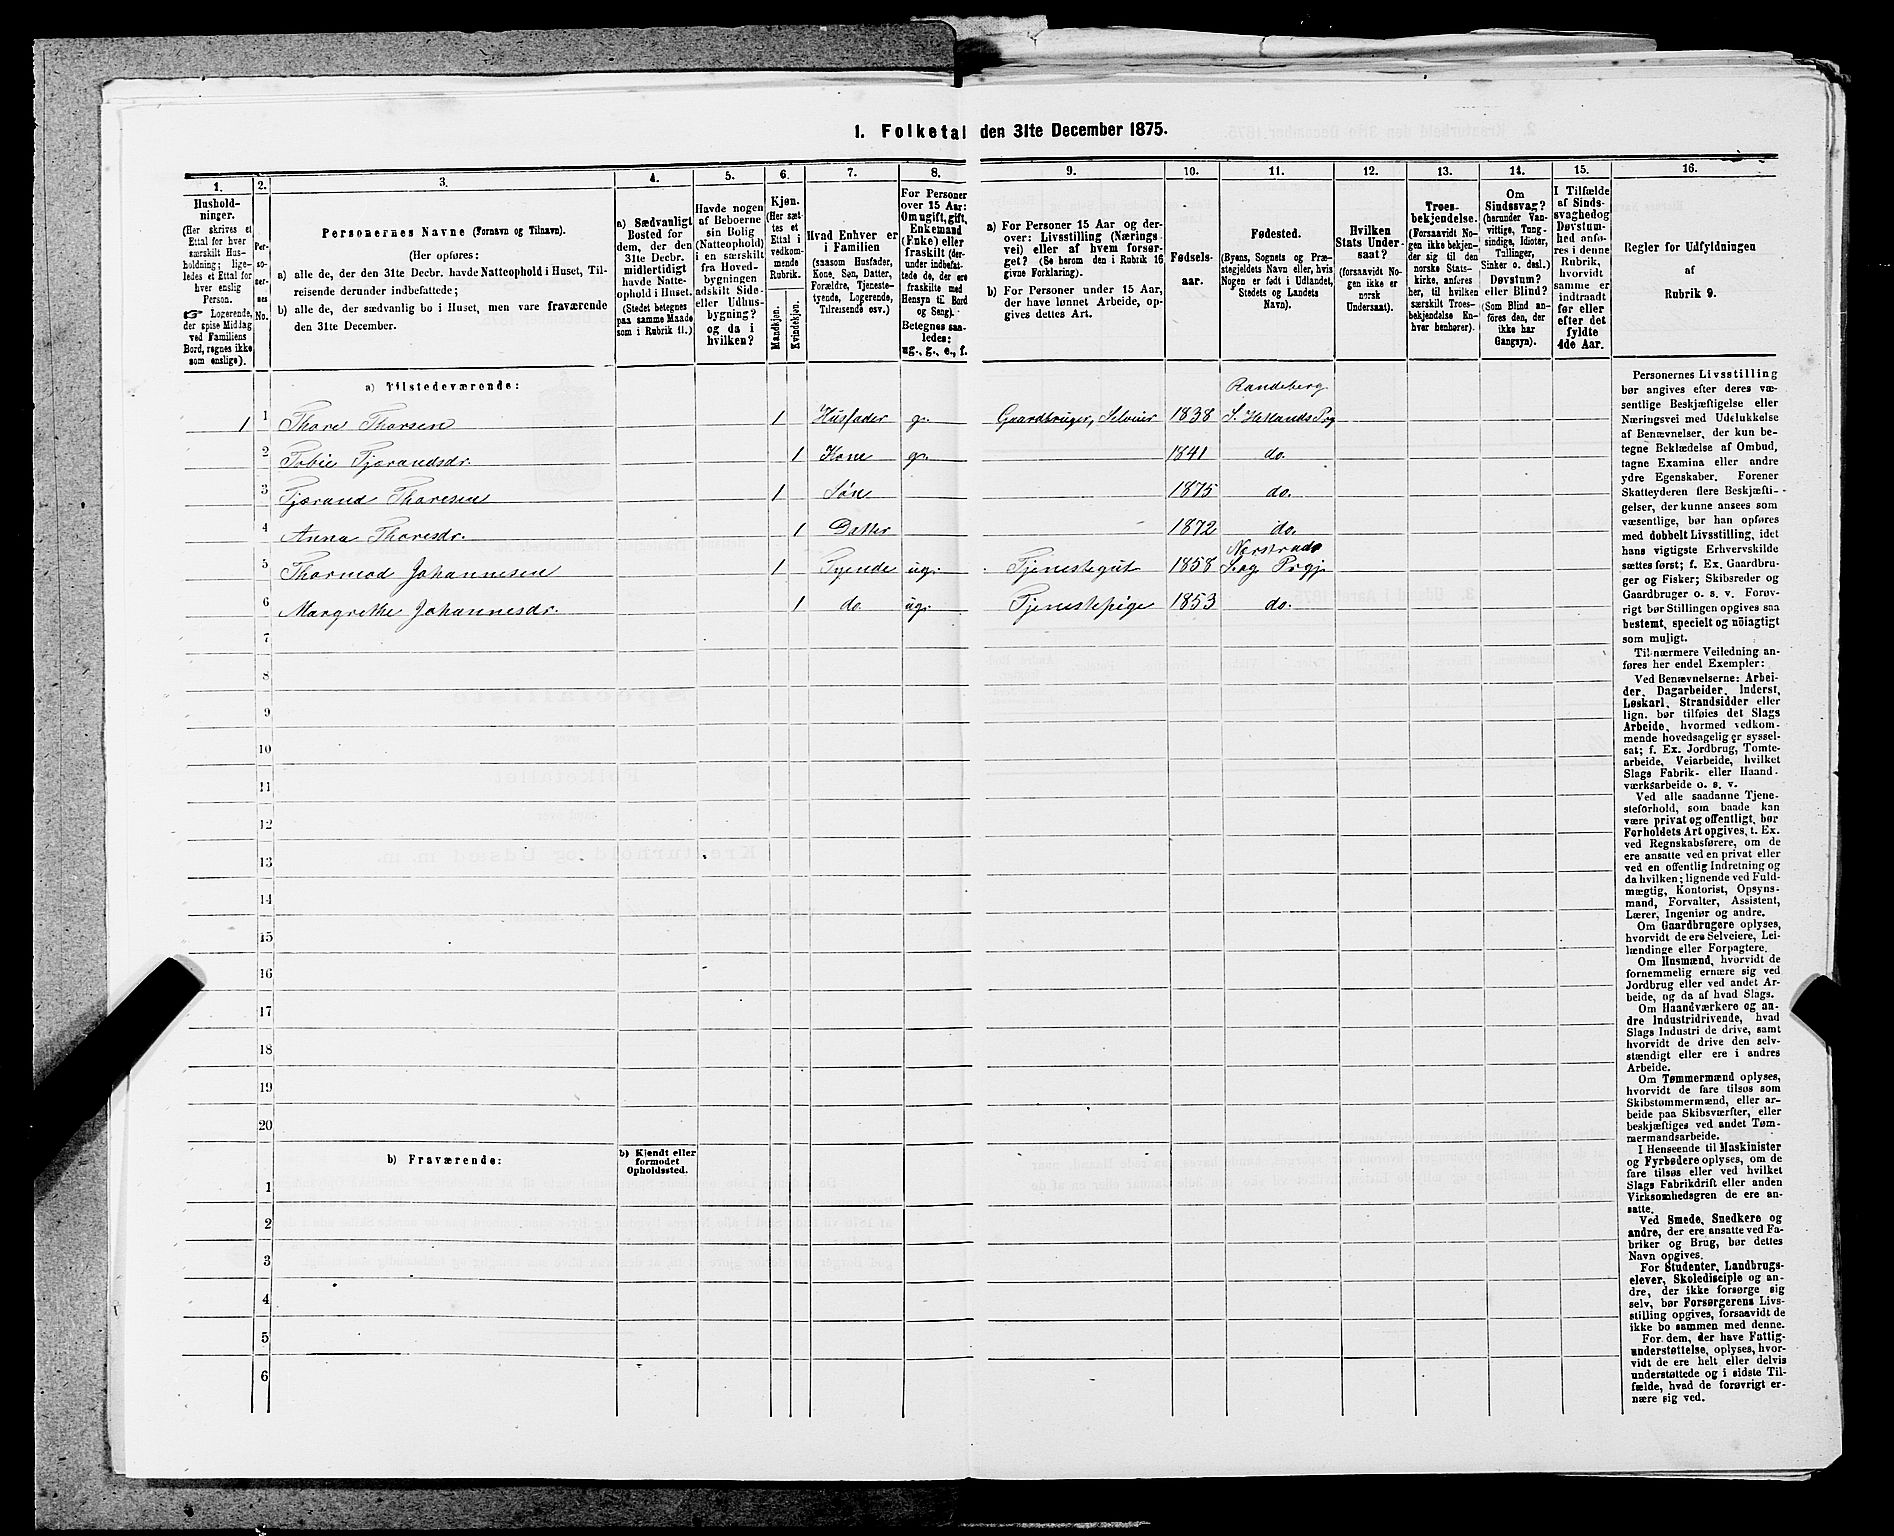 1. Folketal den 31te December 1875.
1.
2.
3.
4.
5.
6.
7.
8.
9.
10.
11.
12.
13.
14.
15.
16.
Hushold-
ninger.
(Her skrives et
Ettal for hver
særskilt Hus-
holdning; lige-
ledes et Ettal for
hver enslig
Person.
☞ Logerende,
der spise Middag
ved Familiens
Bord, regnes ikke
som enslige).
Per-
so-
ner-
nes
No.
Personernes Navne (Fornavn og Tilnavn).
(Her opføres:
a) alle de, der den 31te Decbr. havde Natteophold i Huset, Til-
reisende derunder indbefattede;
b) alle de, der sædvanlig bo i Huset, men vare fraværende
den 31te December.
a) Sædvanligt
Bosted for
dem, der den
31te Decbr.
midlertidigt
havde Natte-
ophold i Huset.
(Stedet betegnes
paa samme Maade
som i Rubrik 11.)
Havde nogen
af Beboerne
sin Bolig
(Natteophold)
i en særskilt
fra Hoved-
bygningen
adskilt Side-
eller Udhus-
bygning?
og da i
hvilken?
Kjøn.
(Her sæt-
tes et
Ettal i
vedkom-
mende
Rubrik.
Mandkjøn.
Kvindekjøn.
Hvad Enhver er
i Familien
(saasom Husfader,
Kone, Søn, Datter,
Forældre, Tjeneste-
tyende, Logerende,
Tilreisende osv.)
For Personer
over 15 Aar:
Om ugift, gift,
Enkemand
(Enke) eller
fraskilt (der-
under indbefat-
tede de, der ere
fraskilte med
Hensyn til Bord
og Seng).
Betegnes saa-
ledes:
ug., g., e., f.
a) For Personer 15 Aar og der-
over: Livsstilling (Nærings-
vei) eller af hvem forsør-
get? (Se herom den i Rubrik 16
givne Forklaring).
b) For Personer under 15 Aar,
der have lønnet Arbeide, op-
gives dettes Art.
Fødsels-
aar.
Fødested.
(Byens, Sognets og Præ-
stegjeldets Navn eller, hvis
Nogen er født i Udlandet,
Stedets og Landets
Navn).
Hvilken
Stats Under-
saat?
(forsaavidt No-
gen ikke er
norsk
Undersaat).
Troes-
bekjendelse.
(Forsaavidt No-
gen ikke bekjen-
der sig til den
norske Stats-
kirke, anføres
her, til hvilken
særskilt Troes-
bekjendelse En-
hver henhører).
Om
Sindssvag?
(herunder Van-
vittige, Tung-
sindige, Idioter,
Tullinger,
Sinker o. desl.)
Døvstum?
eller Blind?
(Som Blind an-
føres den, der
ikke har
Gangsyn).
I Tilfælde
af Sinds-
svaghed og
Døvstum-
hed anfø-
res i denne
Rubrik,
hvorvidt
samme er
indtraadt
før eller
efter det
fyldte
4de Aar.
Regler for Udfyldningen
af
Rubrik 9.
a) Tilstedeværende:
Randeberg
1 1 Thore Thorsen 1 Husfader g. Gaardbruger, Selveier 1838 S. Hetlands Prg
2 Tobie Tjørandsdr. 1 Kone g. 1841 do.
3 Tjørand Thoresen 1 Søn 1875 do.
4 Anna Thoresdr. 1 Datter 1872 do.
Nerstrand
5 Thormod Johannesen 1 Tyende ug. Tjenestegut 1858 S. og Prgj
6 Margrethe Johannesdr. 1 do. ug. Tjenestepige 1853 do.
7
8
9
10
11
12
13
14
15
16
17
18
19
20
b) Fraværende:
b) Kjendt eller
formodet
Opholdssted.
1
2
3
4
5
6
Personernes Livsstilling
bør angives efter deres væ-
sentlige Beskjæftigelse eller
Næringsvei med Udelukkelse
af Benævnelser, der kun be-
tegne Beklædelse af Ombud,
tagne Examina eller andre
ydre Egenskaber. Forener
Skatteyderen flere Beskjæfti-
gelser, der kunne ansees som
væsentlige, bør han opføres
med dobbelt Livsstilling, idet
hans vigtigste Erhvervskilde
sættes først; f. Ex. Gaardbru-
ger og Fisker; Skibsreder og
Gaardbruger o. s. v. Forøv-
rigt bør Stillingen opgives saa
bestemt, specielt og nøiagtigt
som muligt.
Til nærmere Veiledning an-
føres her endel Exempler:
Ved Benævnelserne: Arbei-
der, Dagarbeider, Inderst,
Løskarl, Strandsidder eller
lign. bør tilføies det Slags
Arbeide, hvormed vedkom-
mende hovedsagelig er syssel-
sat; f. Ex. Jordbrug, Tomte-
arbeide, Veiarbeide, hvilket
Slags Fabrik- eller Haand-
værksarbeide o. s. v.
Ved alle saadanne Tjene-
steforhold, som baade kan
være privat og offentligt, bør
Forholdets Art opgives, t. Ex.
ved Regnskabsførere, om de
ere ansatte ved en privat eller
ved en offentlig Indretning og
da hvilken; lignende ved Fuld-
mægtig, Kontorist, Opsyns-
mand, Forvalter, Assistent,
Lærer, Ingeniør og andre.
Om Gaardbrugere oplyses,
hvorvidt de ere Selveiere, Lei-
lændinge eller Forpagtere.
Om Husmænd, hvorvidt de
fornemmelig ernære sig ved
Jordbrug eller ved andet Ar-
beide, og da af hvad Slags.
Om Haandværkere og an-
dre Industridrivende, hvad
Slags Industri de drive, samt
hvorvidt de drive den selv-
stændigt eller ere i andres
Arbeide.
Om Tømmermænd oplyses,
hvorvidt de fare tilsøs som
Skibstømmermænd, eller ar-
beide paa Skibsværfter, eller
beskjæftiges ved andet Tøm-
mermandsarbeide.
I Henseende til Maskinister
og Fyrbødere oplyses, om de
fare tilsøs eller ved hvilket
Slags Fabrikdrift eller anden
Virksomhedsgren de ere an-
satte.
Ved Smede, Snedkere og
andre, der ere ansatte ved Fa-
briker og Brug, bør dettes
Navn opgives.
For Studenter, Landbrugs-
elever, Skoledisciple og an-
dre, der ikke forsørge sig
selv, bør Forsørgerens Livs-
stilling opgives, forsaavidt de
ikke bo sammen med denne.
For dem, der have Fattig-
understøttelse, oplyses, hvor-
vidt de ere helt eller delvis
understøttede og i sidste Til-
fælde, hvad de forøvrigt er-
nære sig ved.